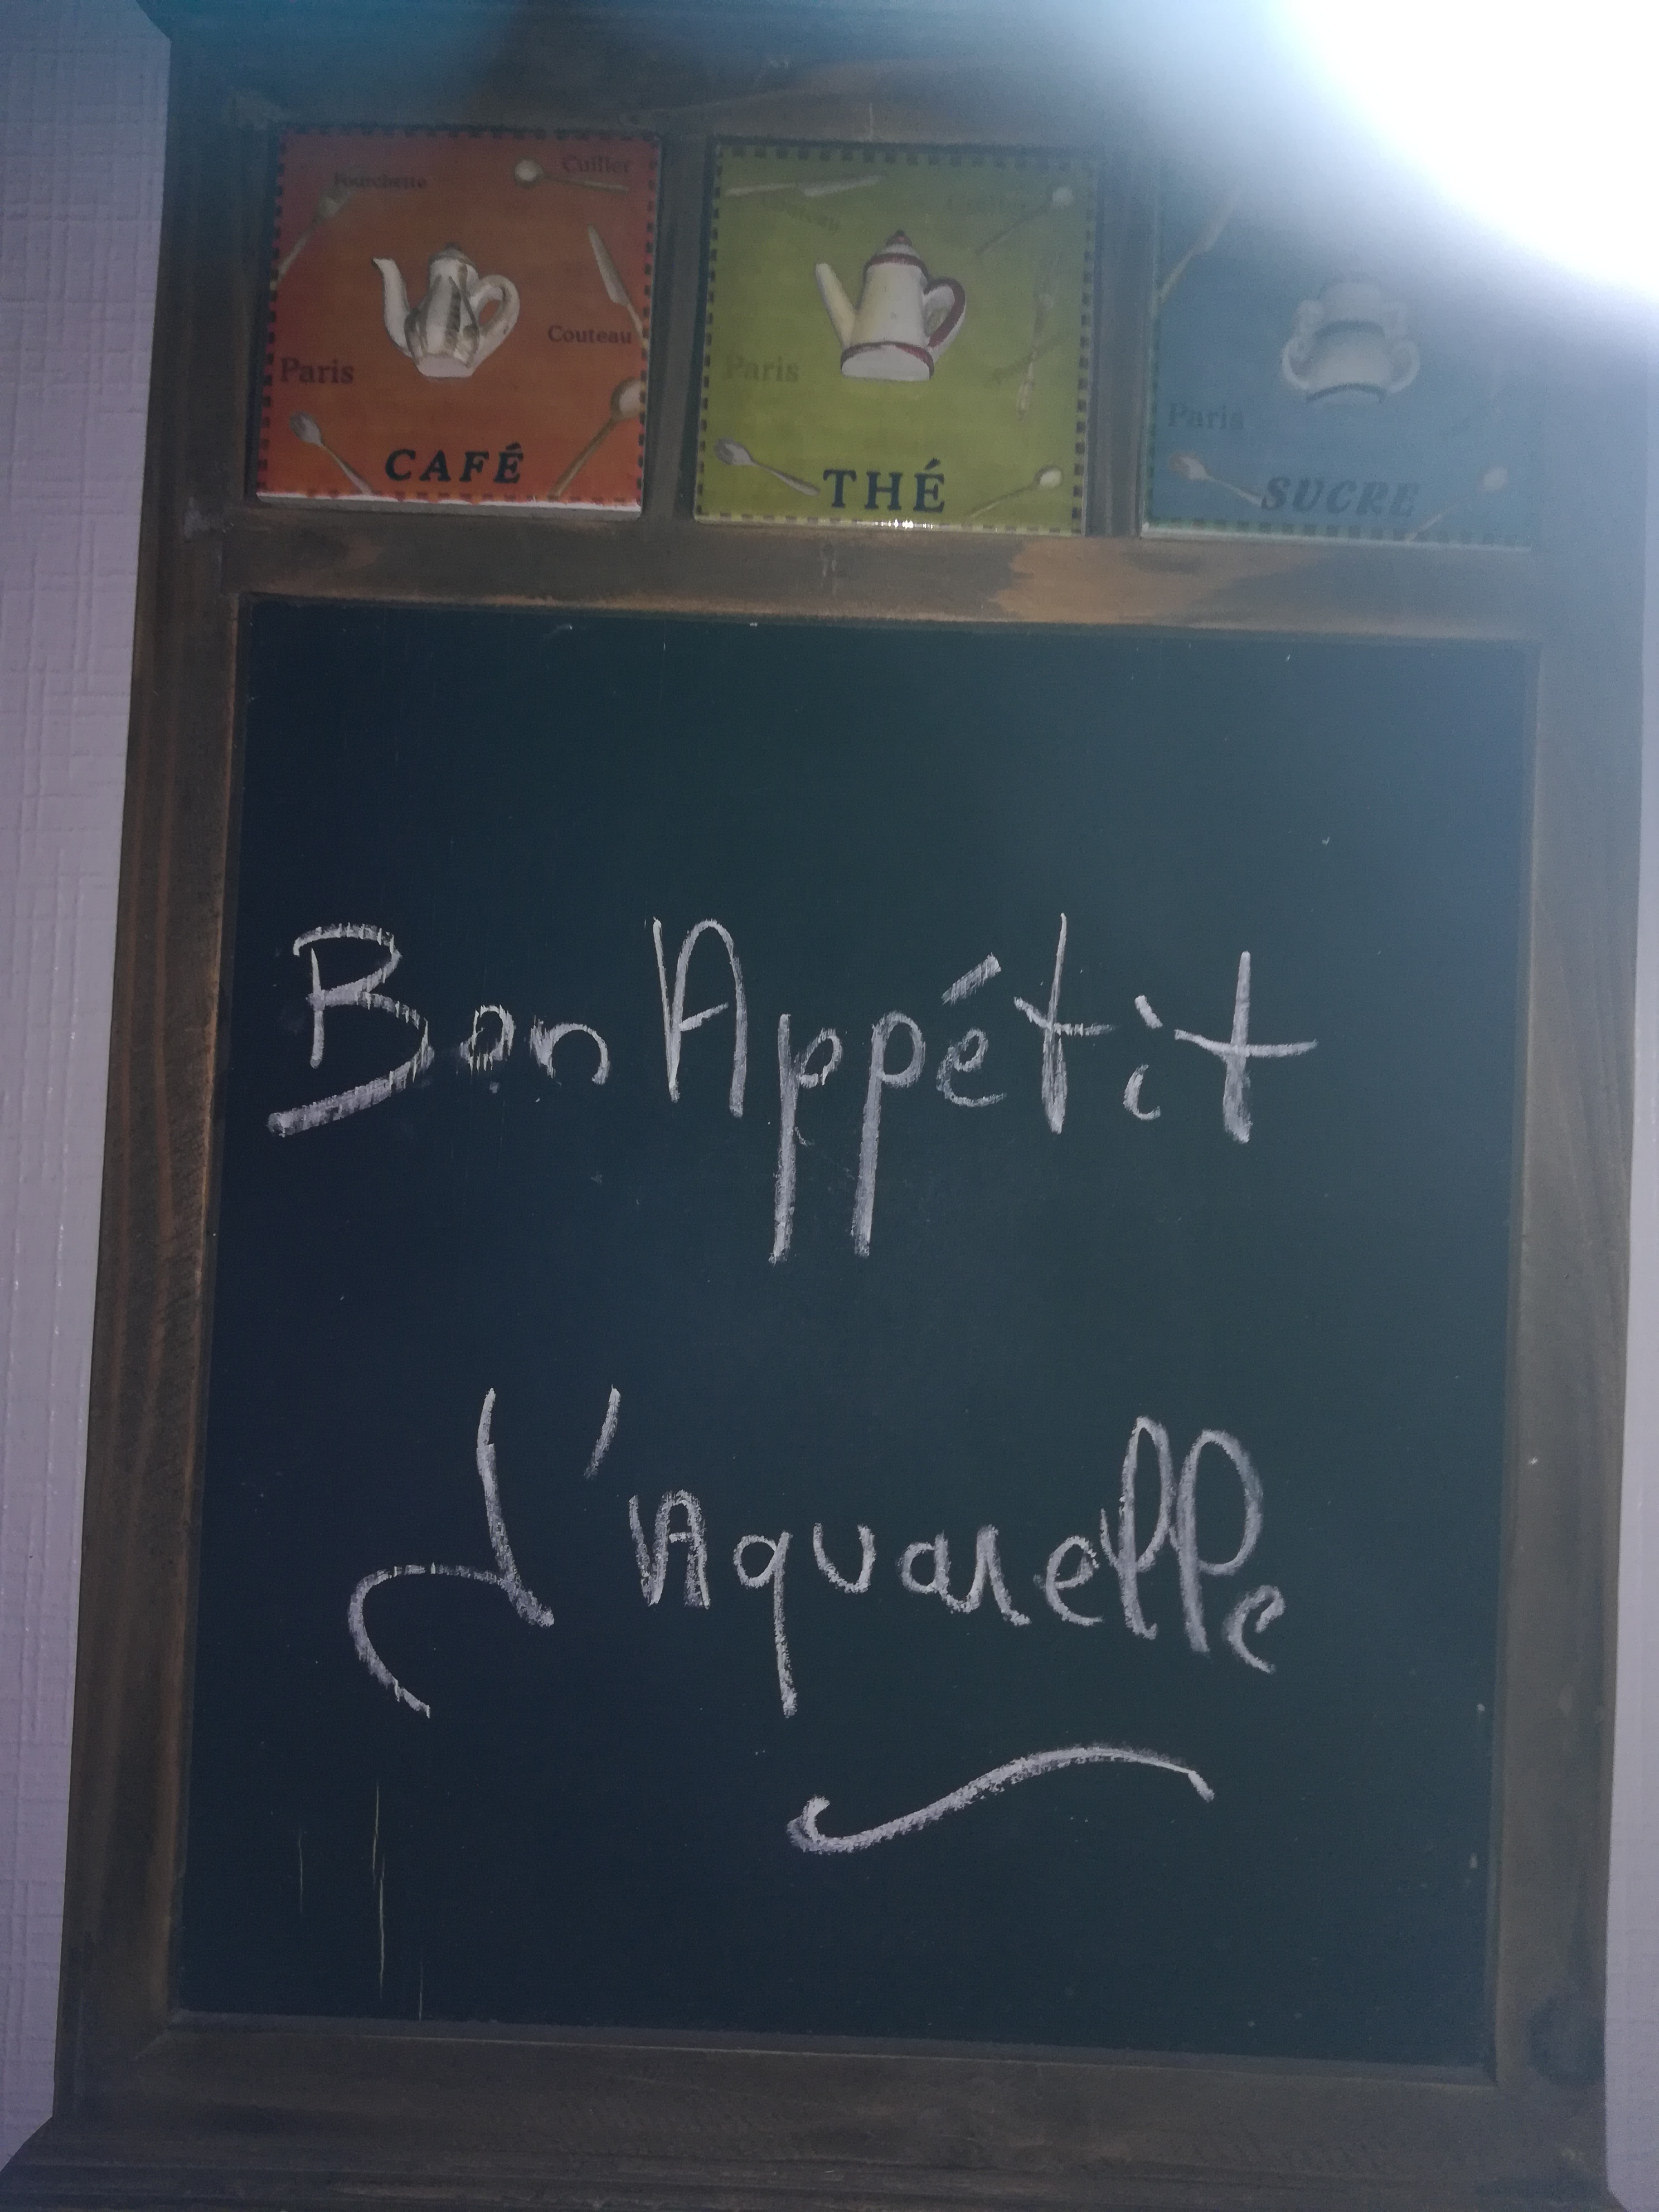 Fourchette
Cuiller
Couteau
Paris
CAFÉ
Couteau
Cuiller
Paris
THÉ
Paris
SUCRE
Bon Appétit
L'Aquarelle